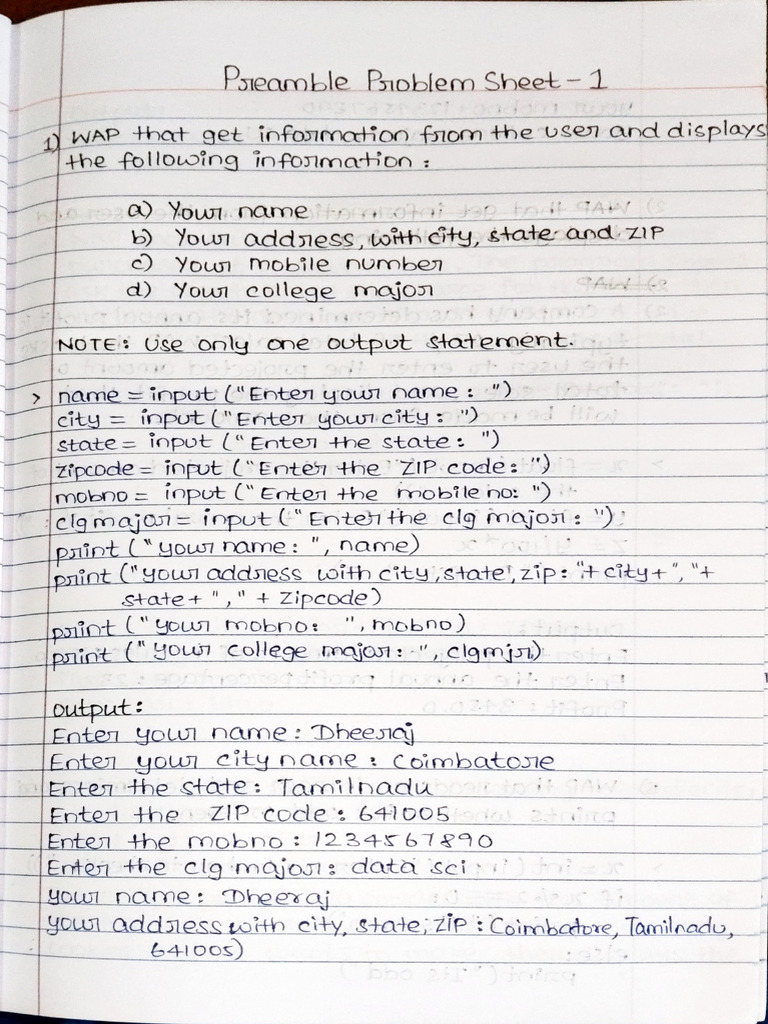 Preamble Problem Sheet - 1
1) WAP that get information from the user and displays
the following information :
a) Your name
b) Your address, with city, state and ZIP
c) Your mobile number
d) Your college major
NOTE: Use only one output statement.
> name = input ("Enter your name : ")
city = input ("Enter your city : ")
state = input ("Enter the state : ")
zipcode = input ("Enter the ZIP code : ")
mobno = input ("Enter the mobile no: ")
clgmajor = input ("Enter the clg major : ")
print ("your name : ", name)
print ("your address with city, state, zip : "+ city + ", "+
state + "," + zipcode)
print ("your mobno: ", mobno)
print ("your college major: ", clgmjr)
output :
Enter your name : Dheeraj
Enter your city name : Coimbatore
Enter the state : Tamilnadu
Enter the ZIP code : 641005
Enter the mobno : 1234567890
Enter the clg major : data sci
your name : Dheeraj
your address with city, state, ZIP : Coimbatore, Tamilnadu,
641005)